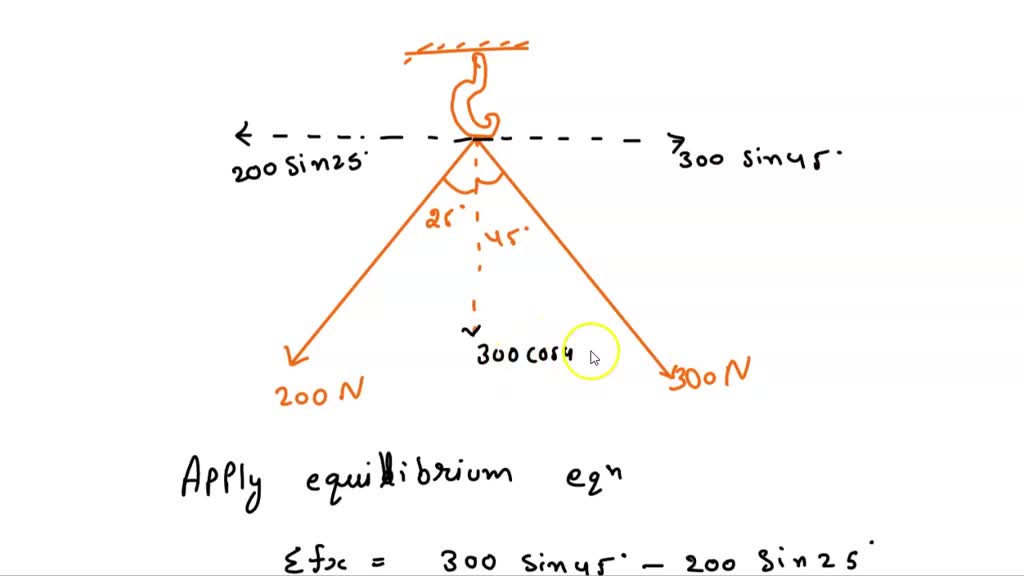 200 sin25° 300 sin45°
25°
45°
300 cos4
200 N 300 N
Apply equilibrium eqn
Σfx = 300 sin45° - 200 sin25°